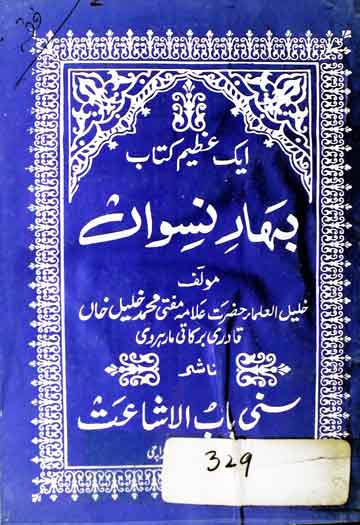 ایک عظیم کتاب
بہارِ نسواں
مولّف
خلیل العلماء حضرت علامہ مفتی محمد خلیل خاں
قادری برکاتی مارہروی
ناشر
سنی باب الاشاعت
329